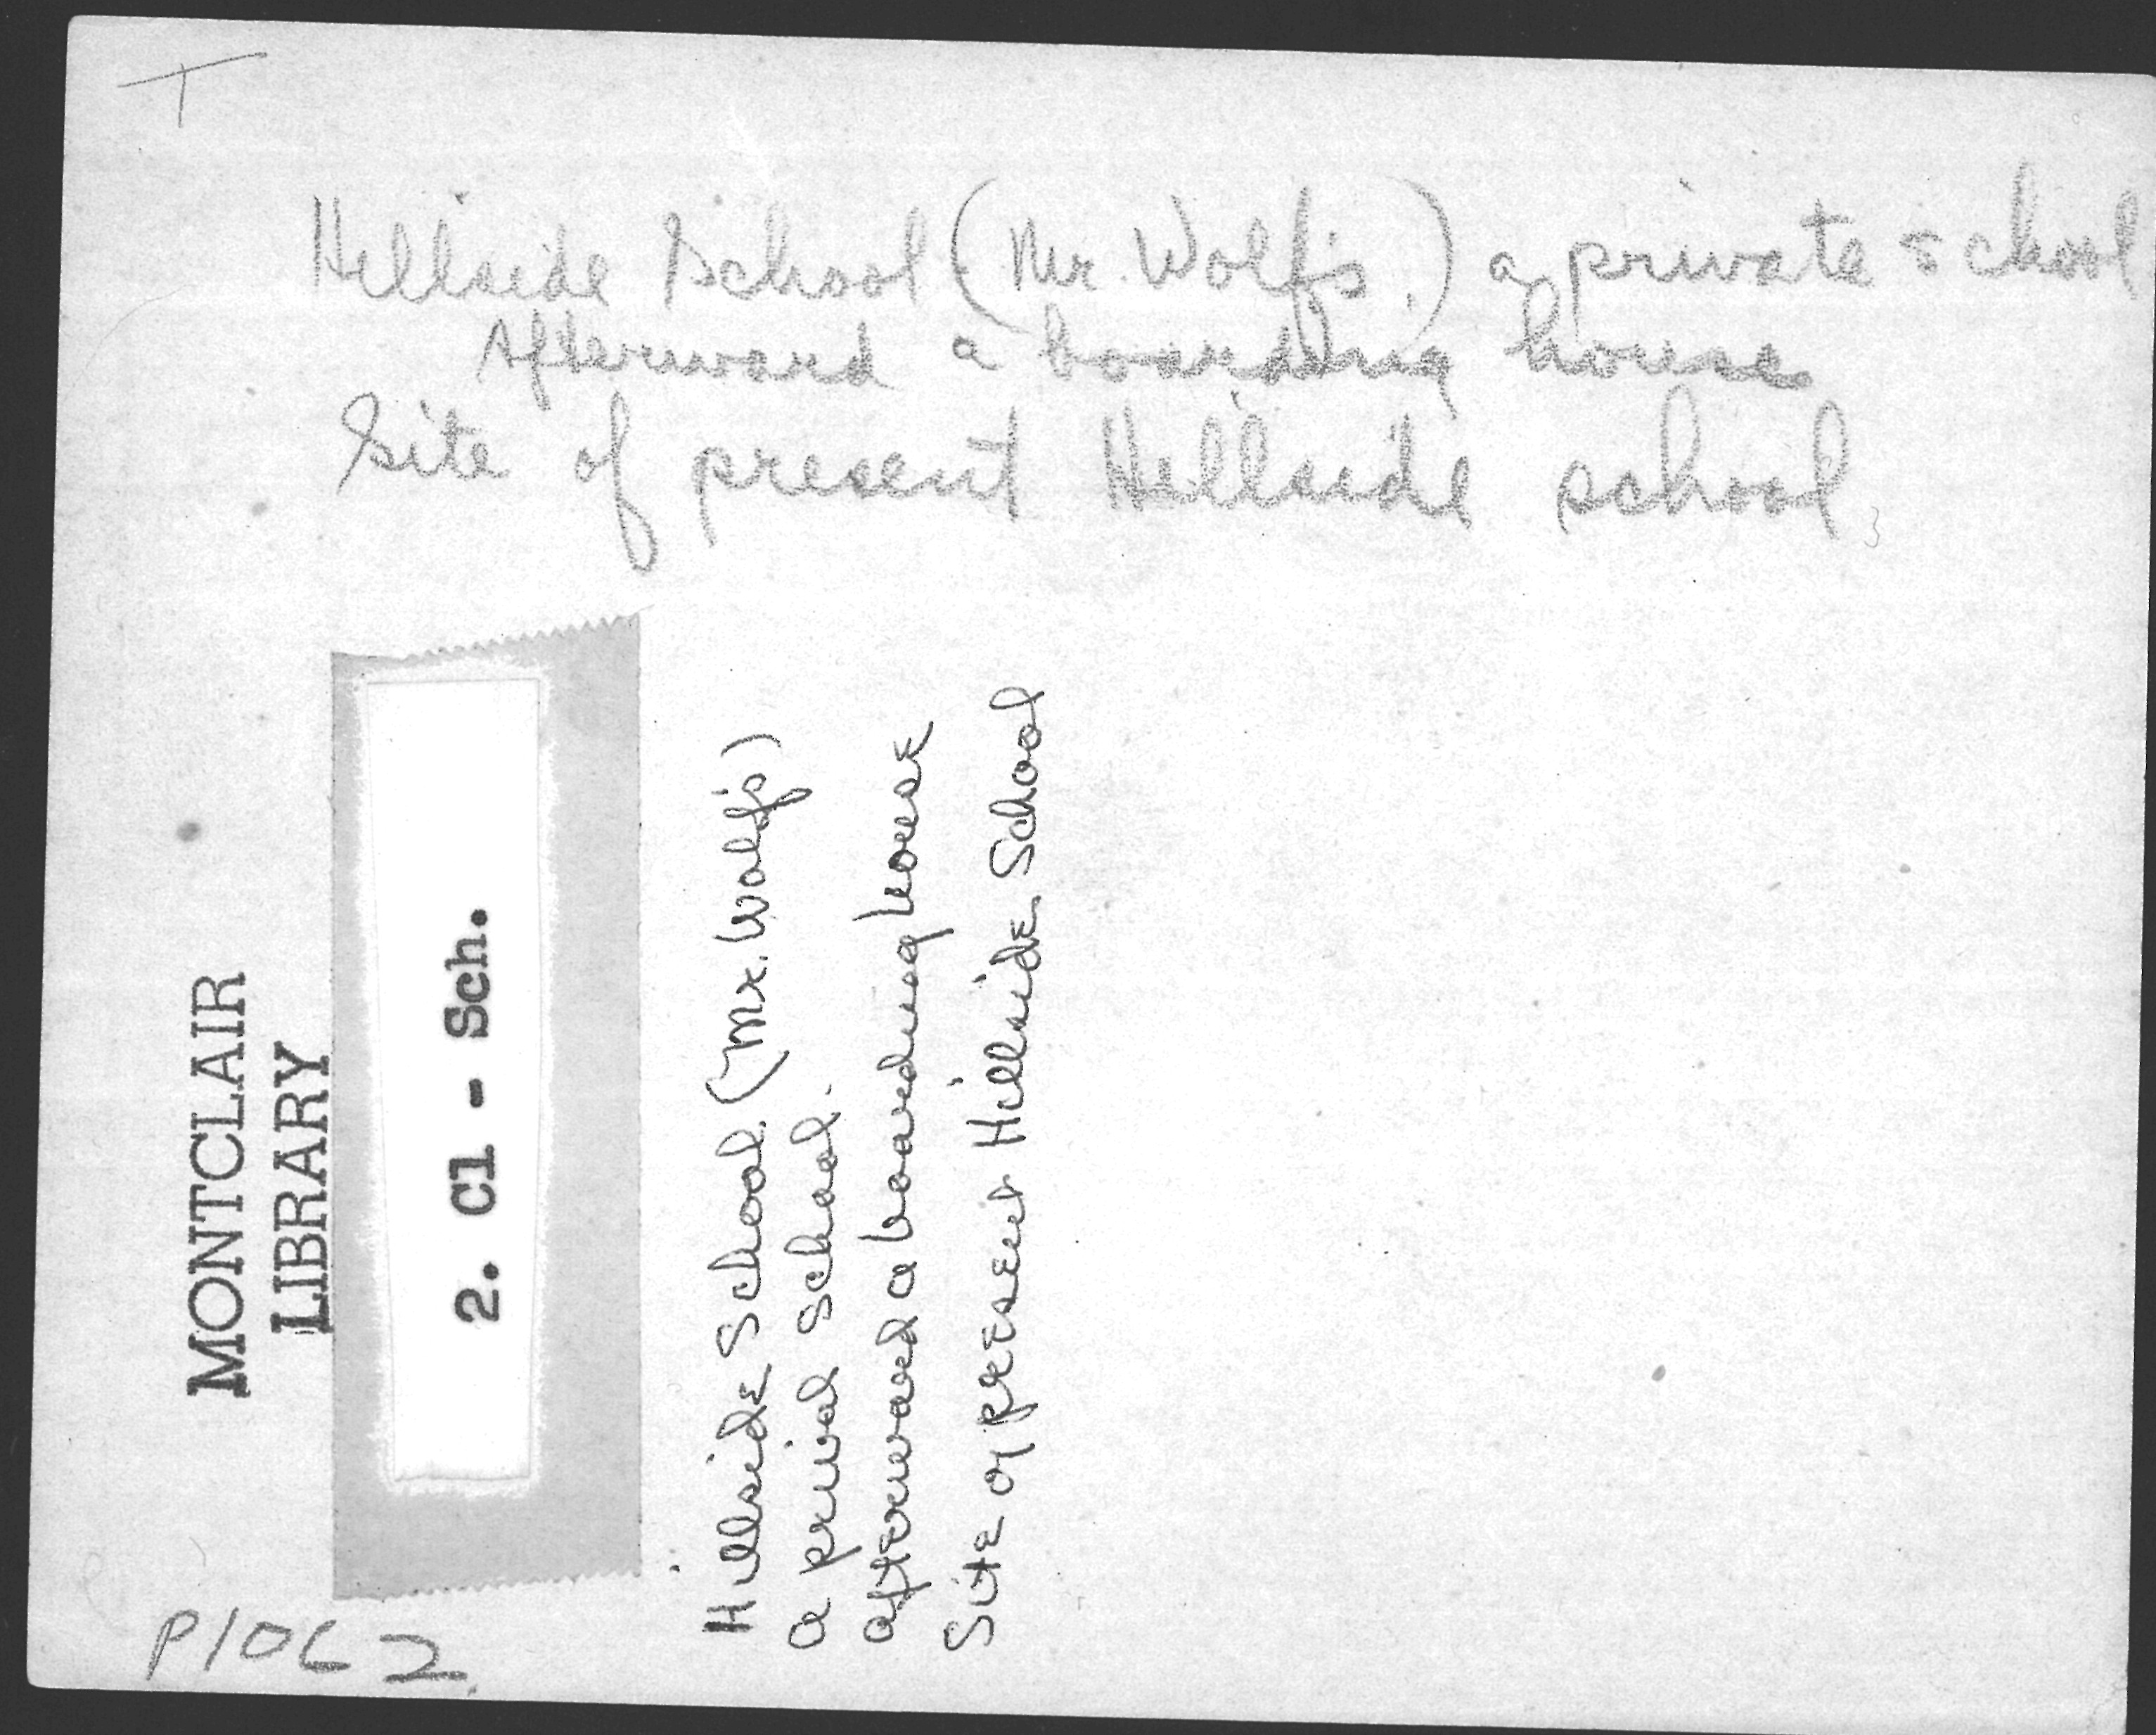 T
Hillside School (Mr. Wolf's.) a private school
Afterward a boarding house
Site of present Hillside school
MONTCLAIR
LIBRARY
2. Cl - Sch.
Hillside School. (Mr. Wolf's)
a privat School.
afterward a boarding house
Site of present Hillside School
P10C2